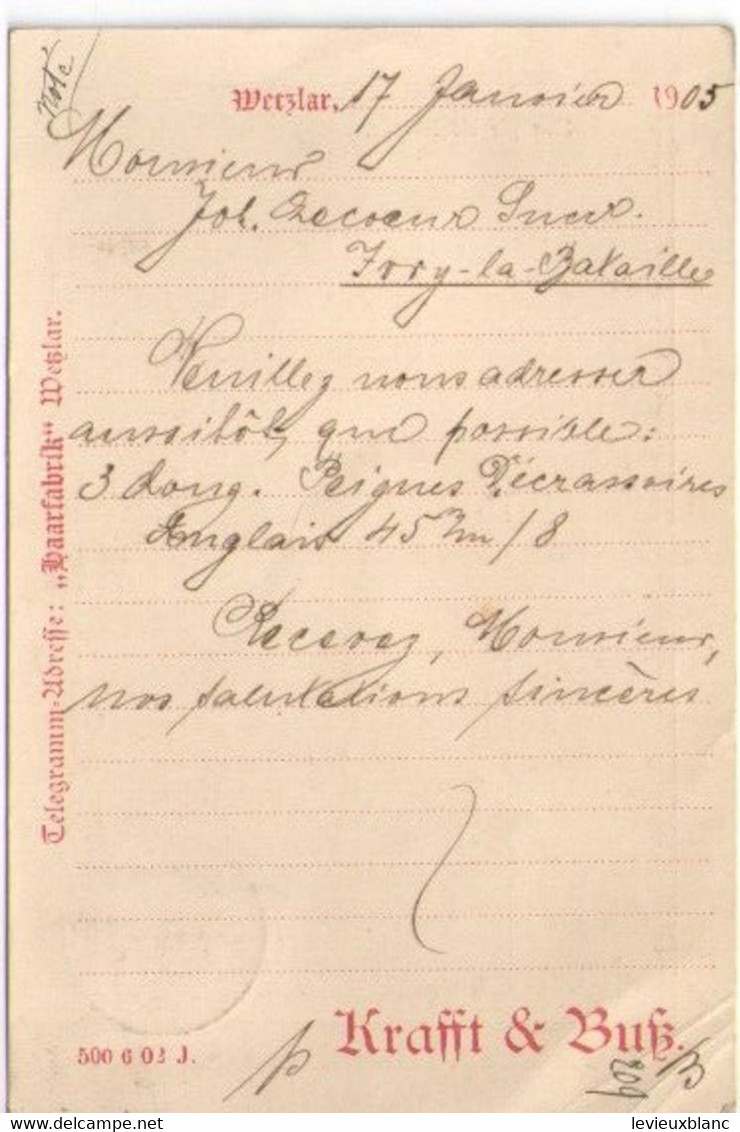 noté
Wetzlar, 17 Janvier 1905
Monsieur
Jol. Lecoeur Sucr.
Ivry-la-Bataille
Veuillez nous adresser
aussitôt que possible:
3 douz. Peignes Décrassoires
Anglais 45 m/m / 8
Recevez, Monsieur,
nos salutations sincères
Telegramm-Adresse: „Haarfabrik“ Wetzlar.
Krafft & Buß.
500 6 02 J.
levieuxblanc